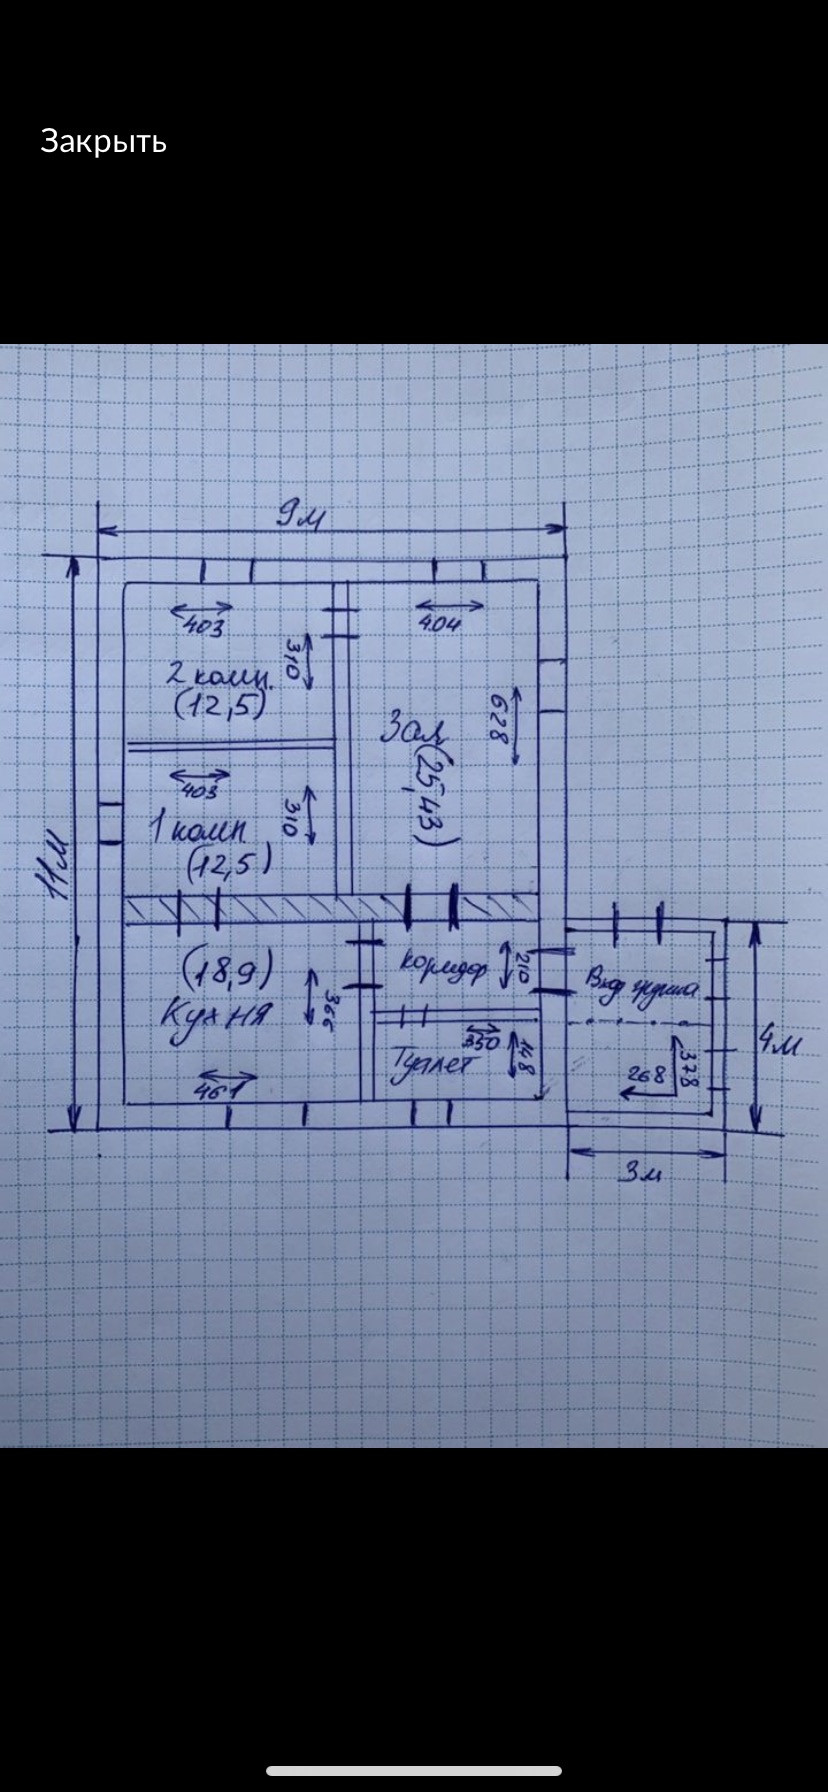 Закрыть
9м
403
404
310
2 комн.
(12,5)
628
Зал
(25,43)
403
310
1 комн
(12,5)
11м
(18,9)
Кухня
366
461
коридор
210
Вход группа
330
Туалет
148
268
378
4м
3м